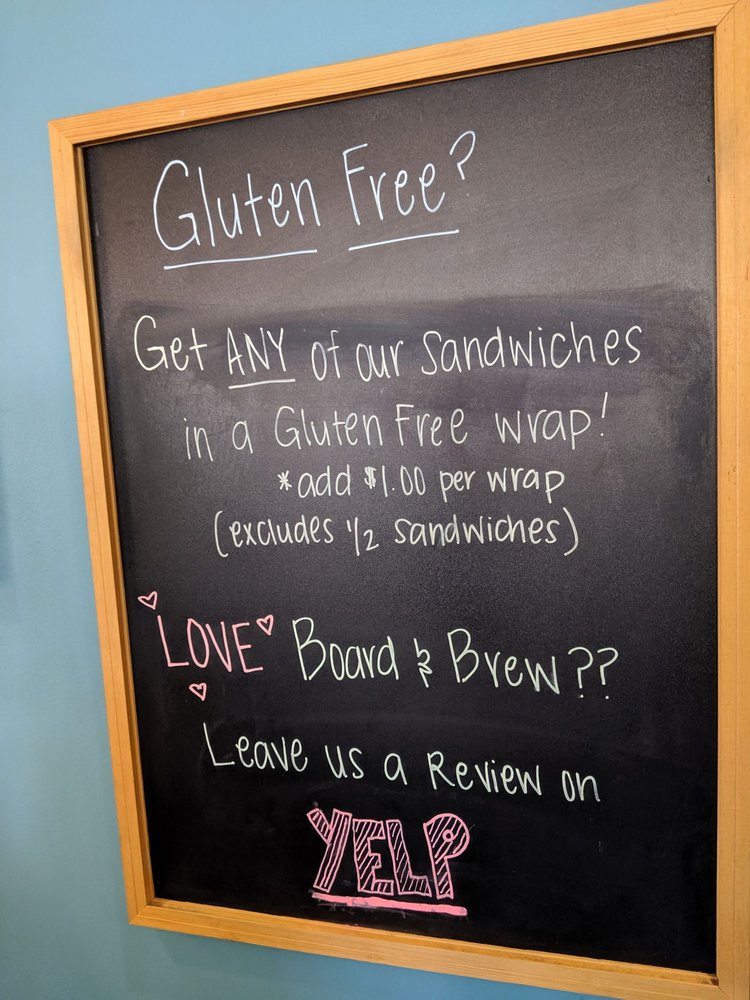 Gluten Free?
Get ANY of our Sandwiches
in a Gluten Free wrap!
*add $1.00 per wrap
(excludes 1/2 sandwiches)
LOVE Board & Brew??
Leave us a Review on
YELP